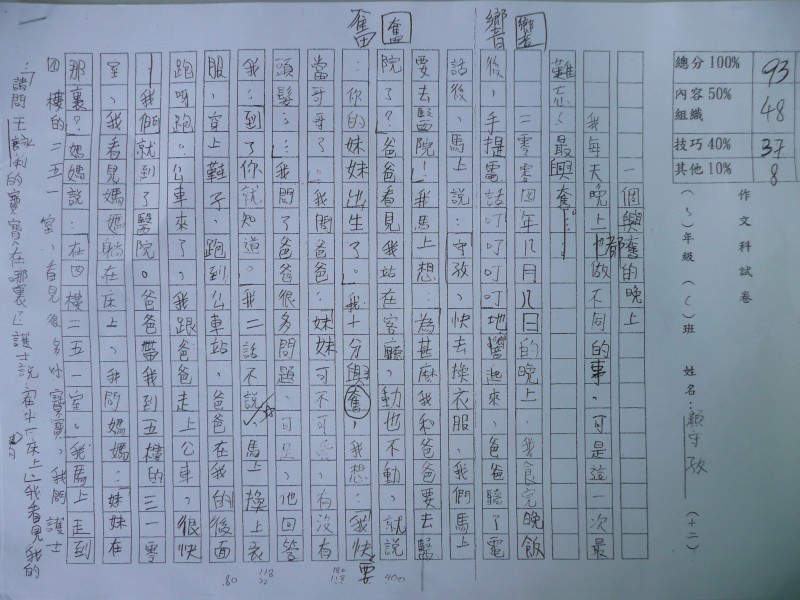 作文科試卷
總分 100% 93
內容 50% 組織 48
技巧 40% 37
其他 10% 8
年級
班
姓名：
(十二)
響 響
奮 奮
一個興奮的晚上
我每天晚上也都做不同的事，可是這一次最
難忘、最興奮……。
二零零四年八月八日的晚上，我食完晚飯
後，手提電話叮叮叮叮地響起來，爸爸聽了電
話後，馬上說：「守孜，快去換衣服，我們馬上
要去醫院！」我馬上想：為甚麼我和爸爸要去醫
院了？爸爸看見我站在客廳，動也不動，就說
：「你的妹妹出生了。」我十分興奮，我想：我快要
當哥哥了。我問爸爸：「妹妹可不可愛，有沒有
頭髮……」我問了爸爸很多問題，可是，他回答
我：「到了你就知道。」我二話不說，馬上換上衣
服，穿上鞋子，跑到公車站，爸爸在我的後面
跑呀跑。公車來了，我跟爸爸走上公車，很快
，我們就到了醫院。爸爸帶我到五樓的三一零
室，我看見媽媽躺在床上，我問媽媽：「妹妹在
那裏？」媽媽說：「在四樓二五一室。」我馬上走到
四樓的二五一室，看見很多小寶寶，我問護士
：「請問王的寶寶在哪裏？」護士說：在十一床上」我看見我的
180 118
118 22
80
400